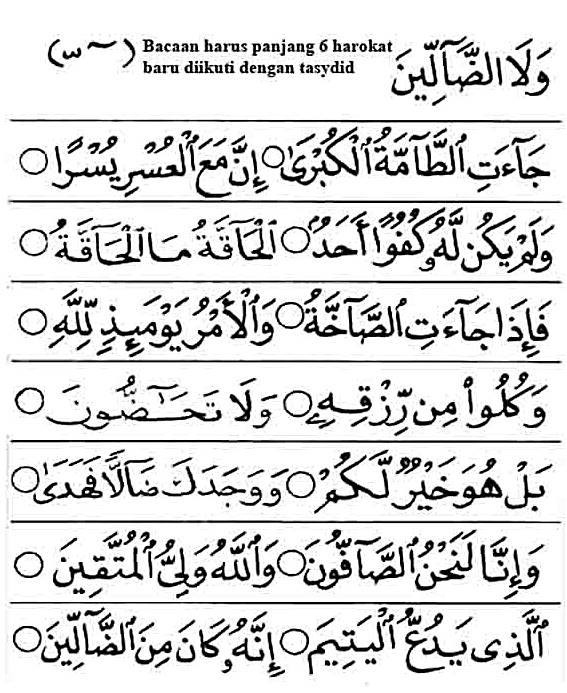 Bacaan harus panjang 6 harokat
baru diikuti dengan tasydid
وَلَا الضَّآلِّينَ
جَآءَتِ ٱلطَّآمَّةُ ٱلْكُبْرَىٰ ○ إِنَّ مَعَ ٱلْعُسْرِ يُسْرًا ○
وَلَمْ يَكُن لَّهُۥ كُفُوًا أَحَدٌۢ ○ ٱلْحَآقَّةُ مَا ٱلْحَآقَّةُ ○
فَإِذَا جَآءَتِ ٱلصَّآخَّةُ ○ وَٱلْأَمْرُ يَوْمَئِذٍ لِّلَّهِ ○
وَكُلُوا۟ مِن رِّزْقِهِۦ ○ وَلَا تَحَٰٓضُّونَ ○
بَلْ هُوَ خَيْرٌ لَّكُمْ ○ وَوَجَدَكَ ضَآلًّا فَهَدَىٰ ○
وَإِنَّا لَنَحْنُ ٱلصَّآفُّونَ ○ وَٱللَّهُ وَلِىُّ ٱلْمُتَّقِينَ ○
ٱلَّذِى يَدُعُّ ٱلْيَتِيمَ ○ إِنَّهُۥ كَانَ مِنَ ٱلضَّآلِّينَ ○